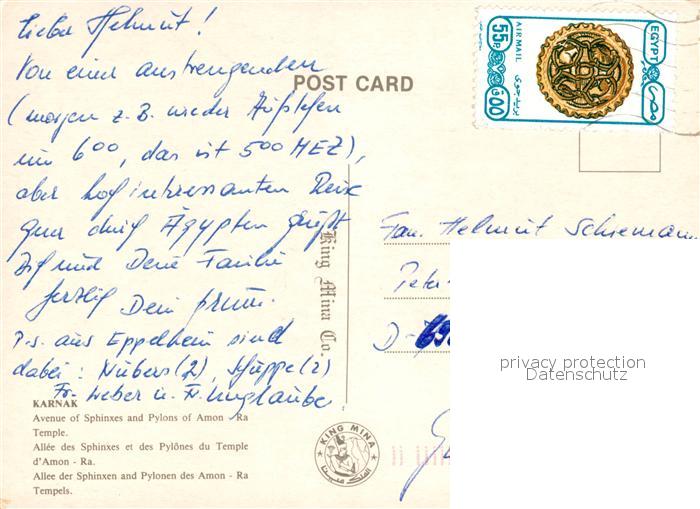 Lieber Helmut!
Von einer anstrengenden
(morgen z.B. wieder Aufstehen
um 6⁰⁰, das ist 5⁰⁰ MEZ),
aber hochinteressanten Reise
quer durch Ägypten grüßt
Dich und Deine Familie
herzlich Dein
P.S. aus Eppelheim sind
dabei: Nubers (2), Schuppe (2)
Fr. Weber u. Fr. Unglaube
POST CARD
AIR MAIL
55 P
600
EGYPT
مصر
بريد جوى
Fam. Helmut Schiemann
Peter
D-69
King Mina Co.
privacy protection
Datenschutz
KARNAK
Avenue of Sphinxes and Pylons of Amon - Ra
Temple.
Allée des Sphinxes et des Pylônes du Temple
d'Amon - Ra.
Allee der Sphinxen and Pylonen des Amon - Ra
Tempels.
KING MINA
الملك مينا